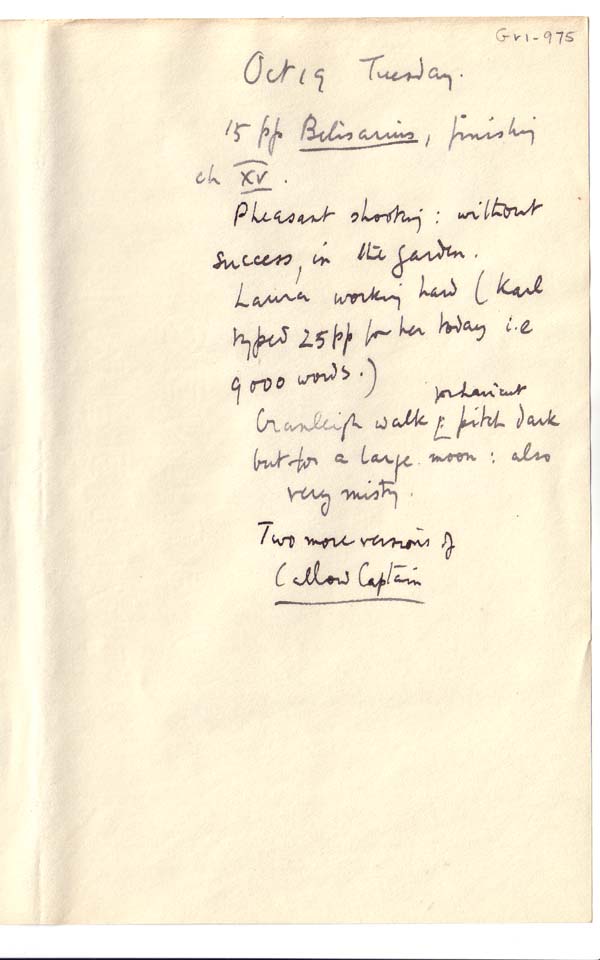 Gr1-975
Oct 19 Tuesday.
15 pp Belisarius, finishing
ch XV.
Pheasant shooting: without
success, in the garden.
Laura working hard (Karl
typed 25 pp for her today i.e
9000 words.)
Cranleigh walk pitch dark
but for a large moon: also
very misty.
Two more versions of
Callow Captain